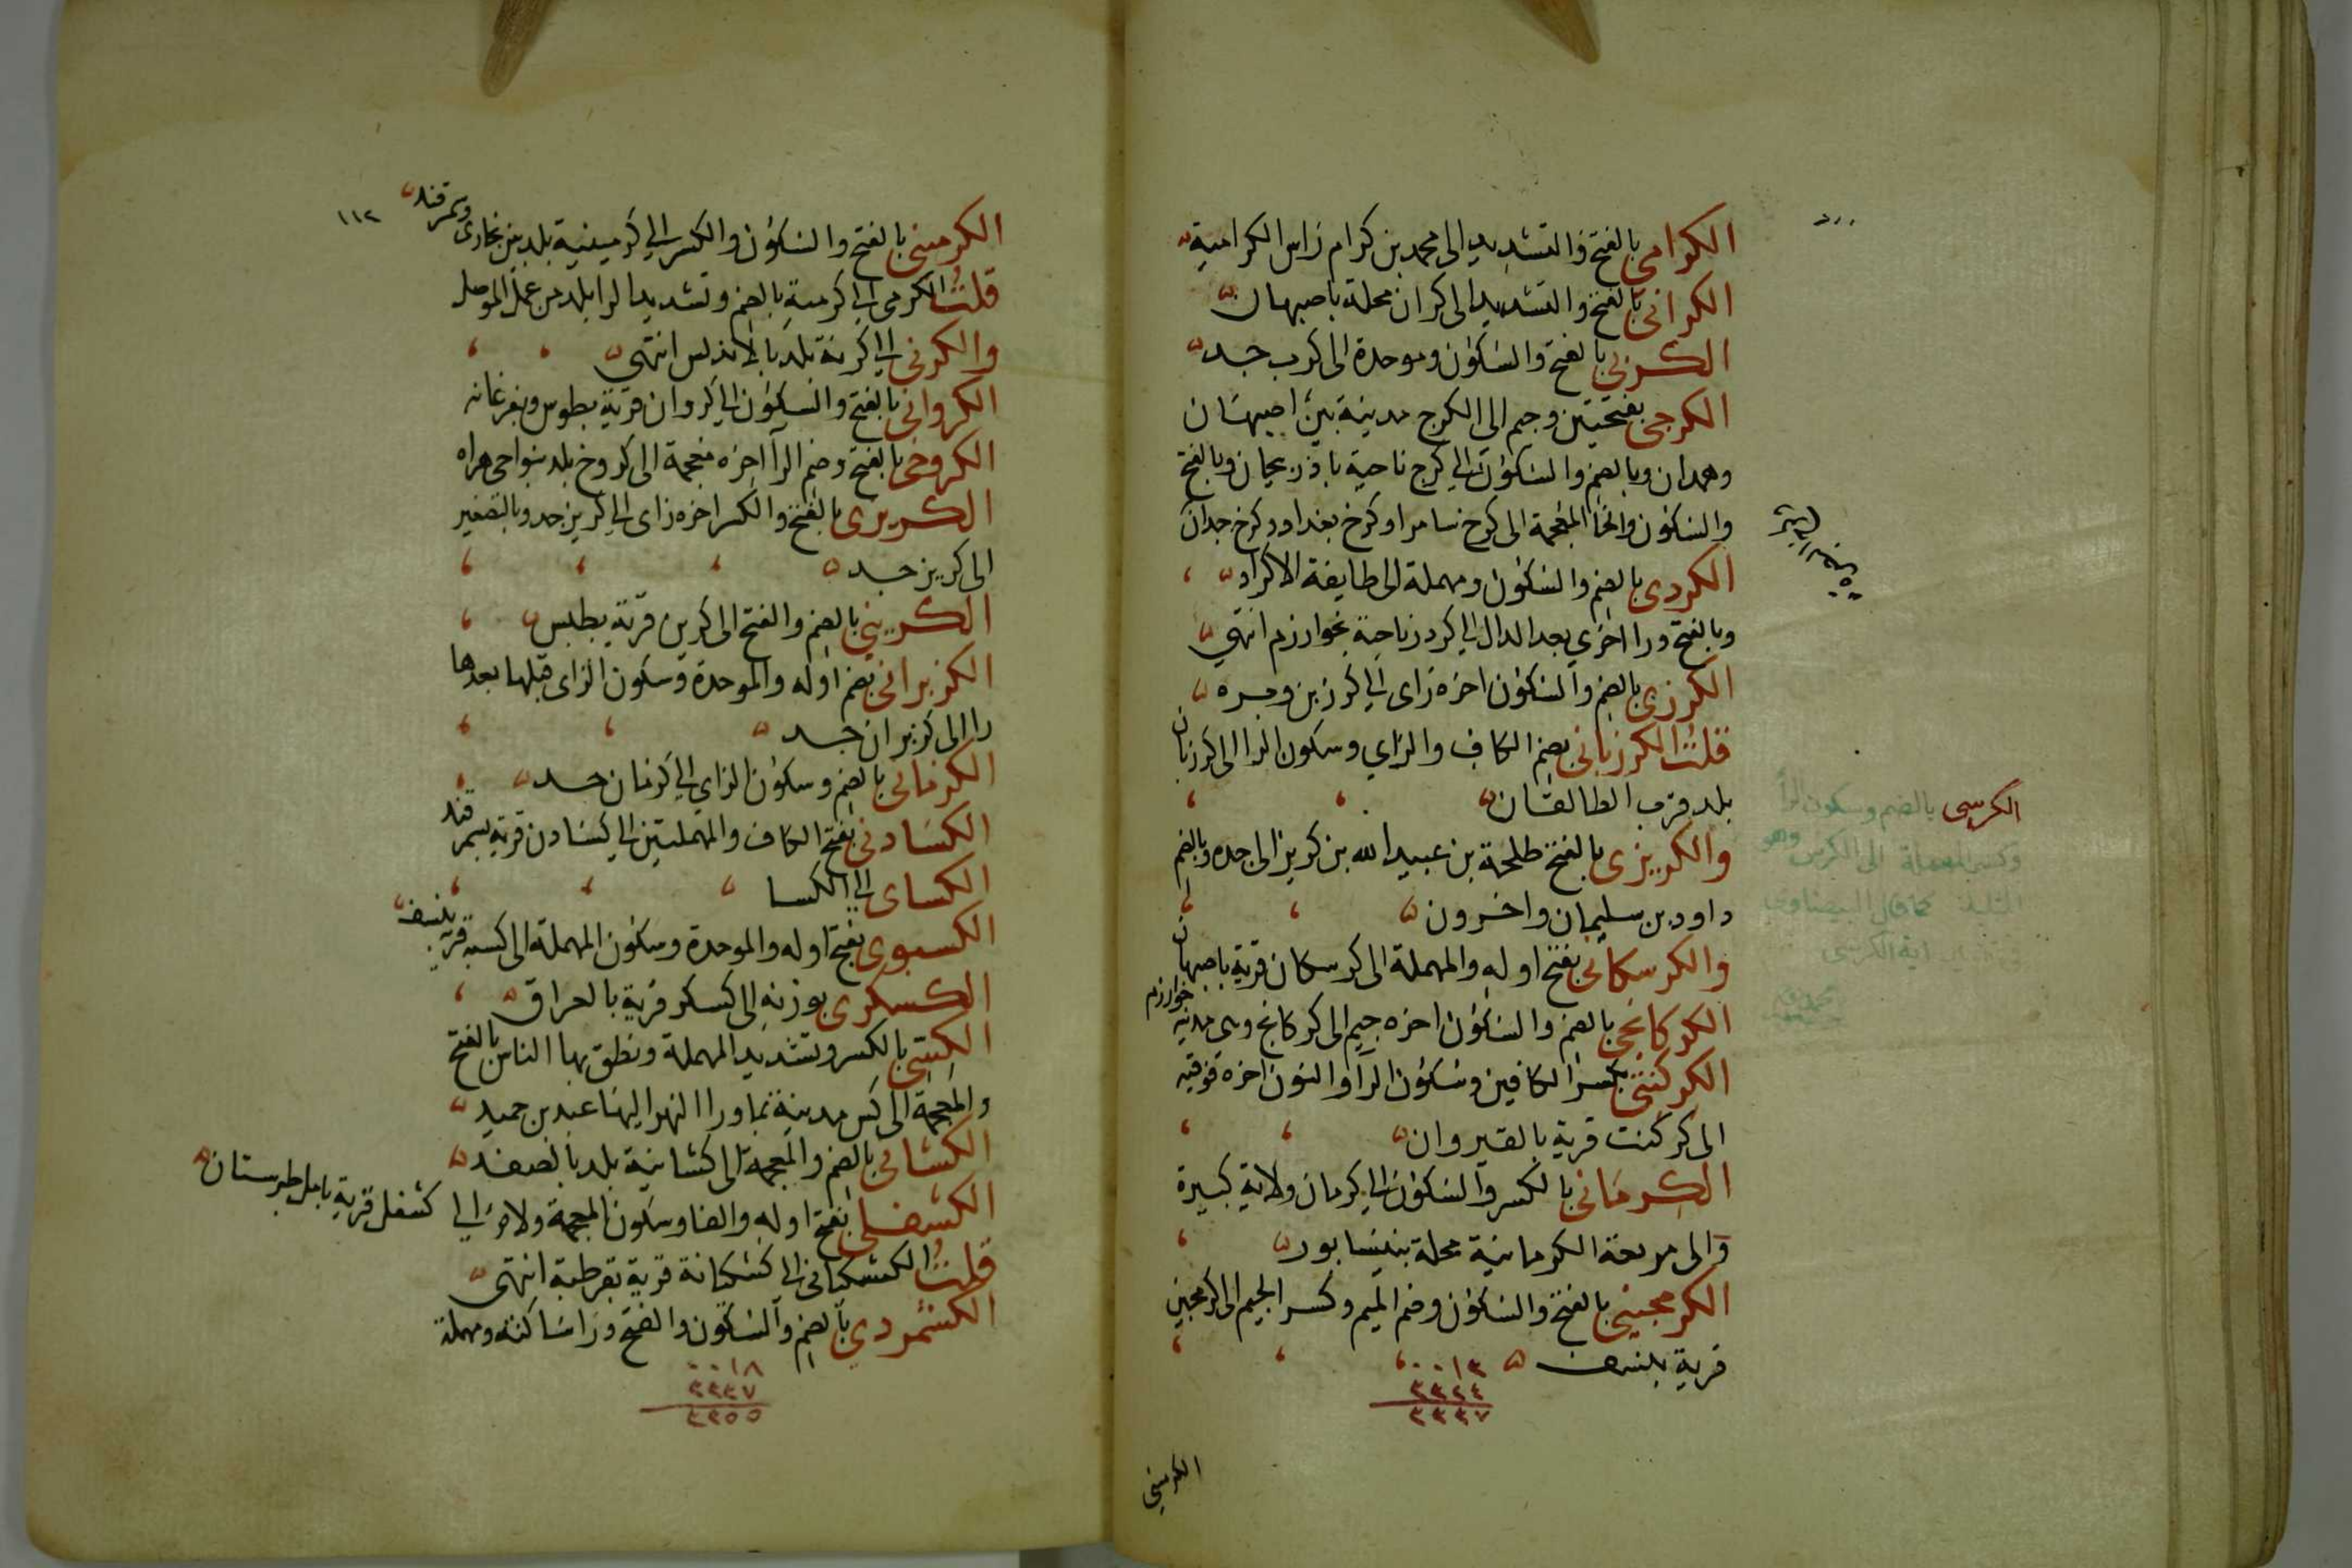 الكرامي بالفتح والتشديد الى محمد بن كرام راس الكرامية
الكراني بالفتح والتشديد الى كران محلة باصبهان
الكربي بالفتح والسكون وموحدة الى كرب جد
الكرجي بفتحتين وجيم الى الكرج مدينة بين اصبهان
وهمدان وبالضم والسكون الى كرج ناحية باذربيجان وبالفتح
والسكون والخا المعجمة الى كرخ سامرا وكرخ بغداد وكرخ جدان
الكردي بالضم والسكون ومهملة الى طايفة الاكراد
وبالفتح ورا اخرى بعد الدال الى كردر ناحية بخوارزم انتهى
الكرزي بالضم والسكون اخره زاى الى كرز بن وبره
قلت الكرزباني بضم الكاف والزاي وسكون الرا الى كرزبان
بلد قرب الطالقان
والكريزى بالفتح طلحة بن عبيد الله بن كريز الى جده وبالضم
داود بن سليمان واخرون
والكرسكاني بفتح اوله والمهملة الى كرسكان قرية باصبهان
الكركانجي بالضم والسكون اخره جيم الى كركانج وهى مدينة خوارزم
الكركنتي بكسر الكافين وسكون الرا والنون اخره فوقيه
الى كركنت قرية بالقيروان
الكرماني بالكسر والسكون الى كرمان ولاية كبيرة
والى مربعة الكرمانية محلة بنيسابور
الكرمجيني بالفتح والسكون وضم الميم وكسر الجيم الى كرمجين
قرية بنسف
٠٠١٣
٣٣٢٤
٣٣٣٧
الكرسى بالضم وسكون الرا
وكسر المهملة الى الكرسى وهو
كما قال البيضاوي
اية الكرسى
الكرميني
١١٢
الكرميني بالفتح والسكون والكسر الى كرمينية بلد بين بخارى وسمرقند
قلت الكرمي الى كرمية بالضم وتشديد الرا بلد من عمل الموصل
والكرنى الى كرنة بلد بالاندلس انتهى
الكرواني بالفتح والسكون الى كروان قرية بطوس وبفرغانه
الكروخي بالفتح وضم الرا اخره معجمة الى كروخ بلد بنواحى هراه
الكريزى بالفتح والكسر اخره زاى الى كريز جد وبالتصغير
الى كريز جد
الكريني بالضم والفتح الى كرين قرية بطبس
الكزبراني بضم اوله والموحدة وسكون الزاى قبلها بعدها
را الى كزبران جد
الكزماني بالضم وسكون الزاي الى كزمان جد
الكسادنى بفتح الكاف والمهملتين الى كسادن قرية بسمرقند
الكساى الى الكسا
الكسبوى بفتح اوله والموحدة وسكون المهملة الى كسبه قرية بنسف
الكسكرى بوزنه الى كسكر قرية بالعراق
الكسي بالكسر وتشديد المهملة ونطق بها الناس بالفتح
والمعجمة الى كس مدينة بما ورا النهر اليها عبد بن حميد
الكشاني بالضم والمعجمة الى كشانية بلد بالصغد
الكشفلى بفتح اوله والفا وسكون المعجمة ولام الى كشفل قرية بامل طبرستان
قلت الكشكاني الى كشكانة قرية بقرطبة انتهى
الكشمردي بالضم والسكون والفتح ورا ساكنه ومهملة
٠٠١٨
٣٣٣٧
٣٣٥٥